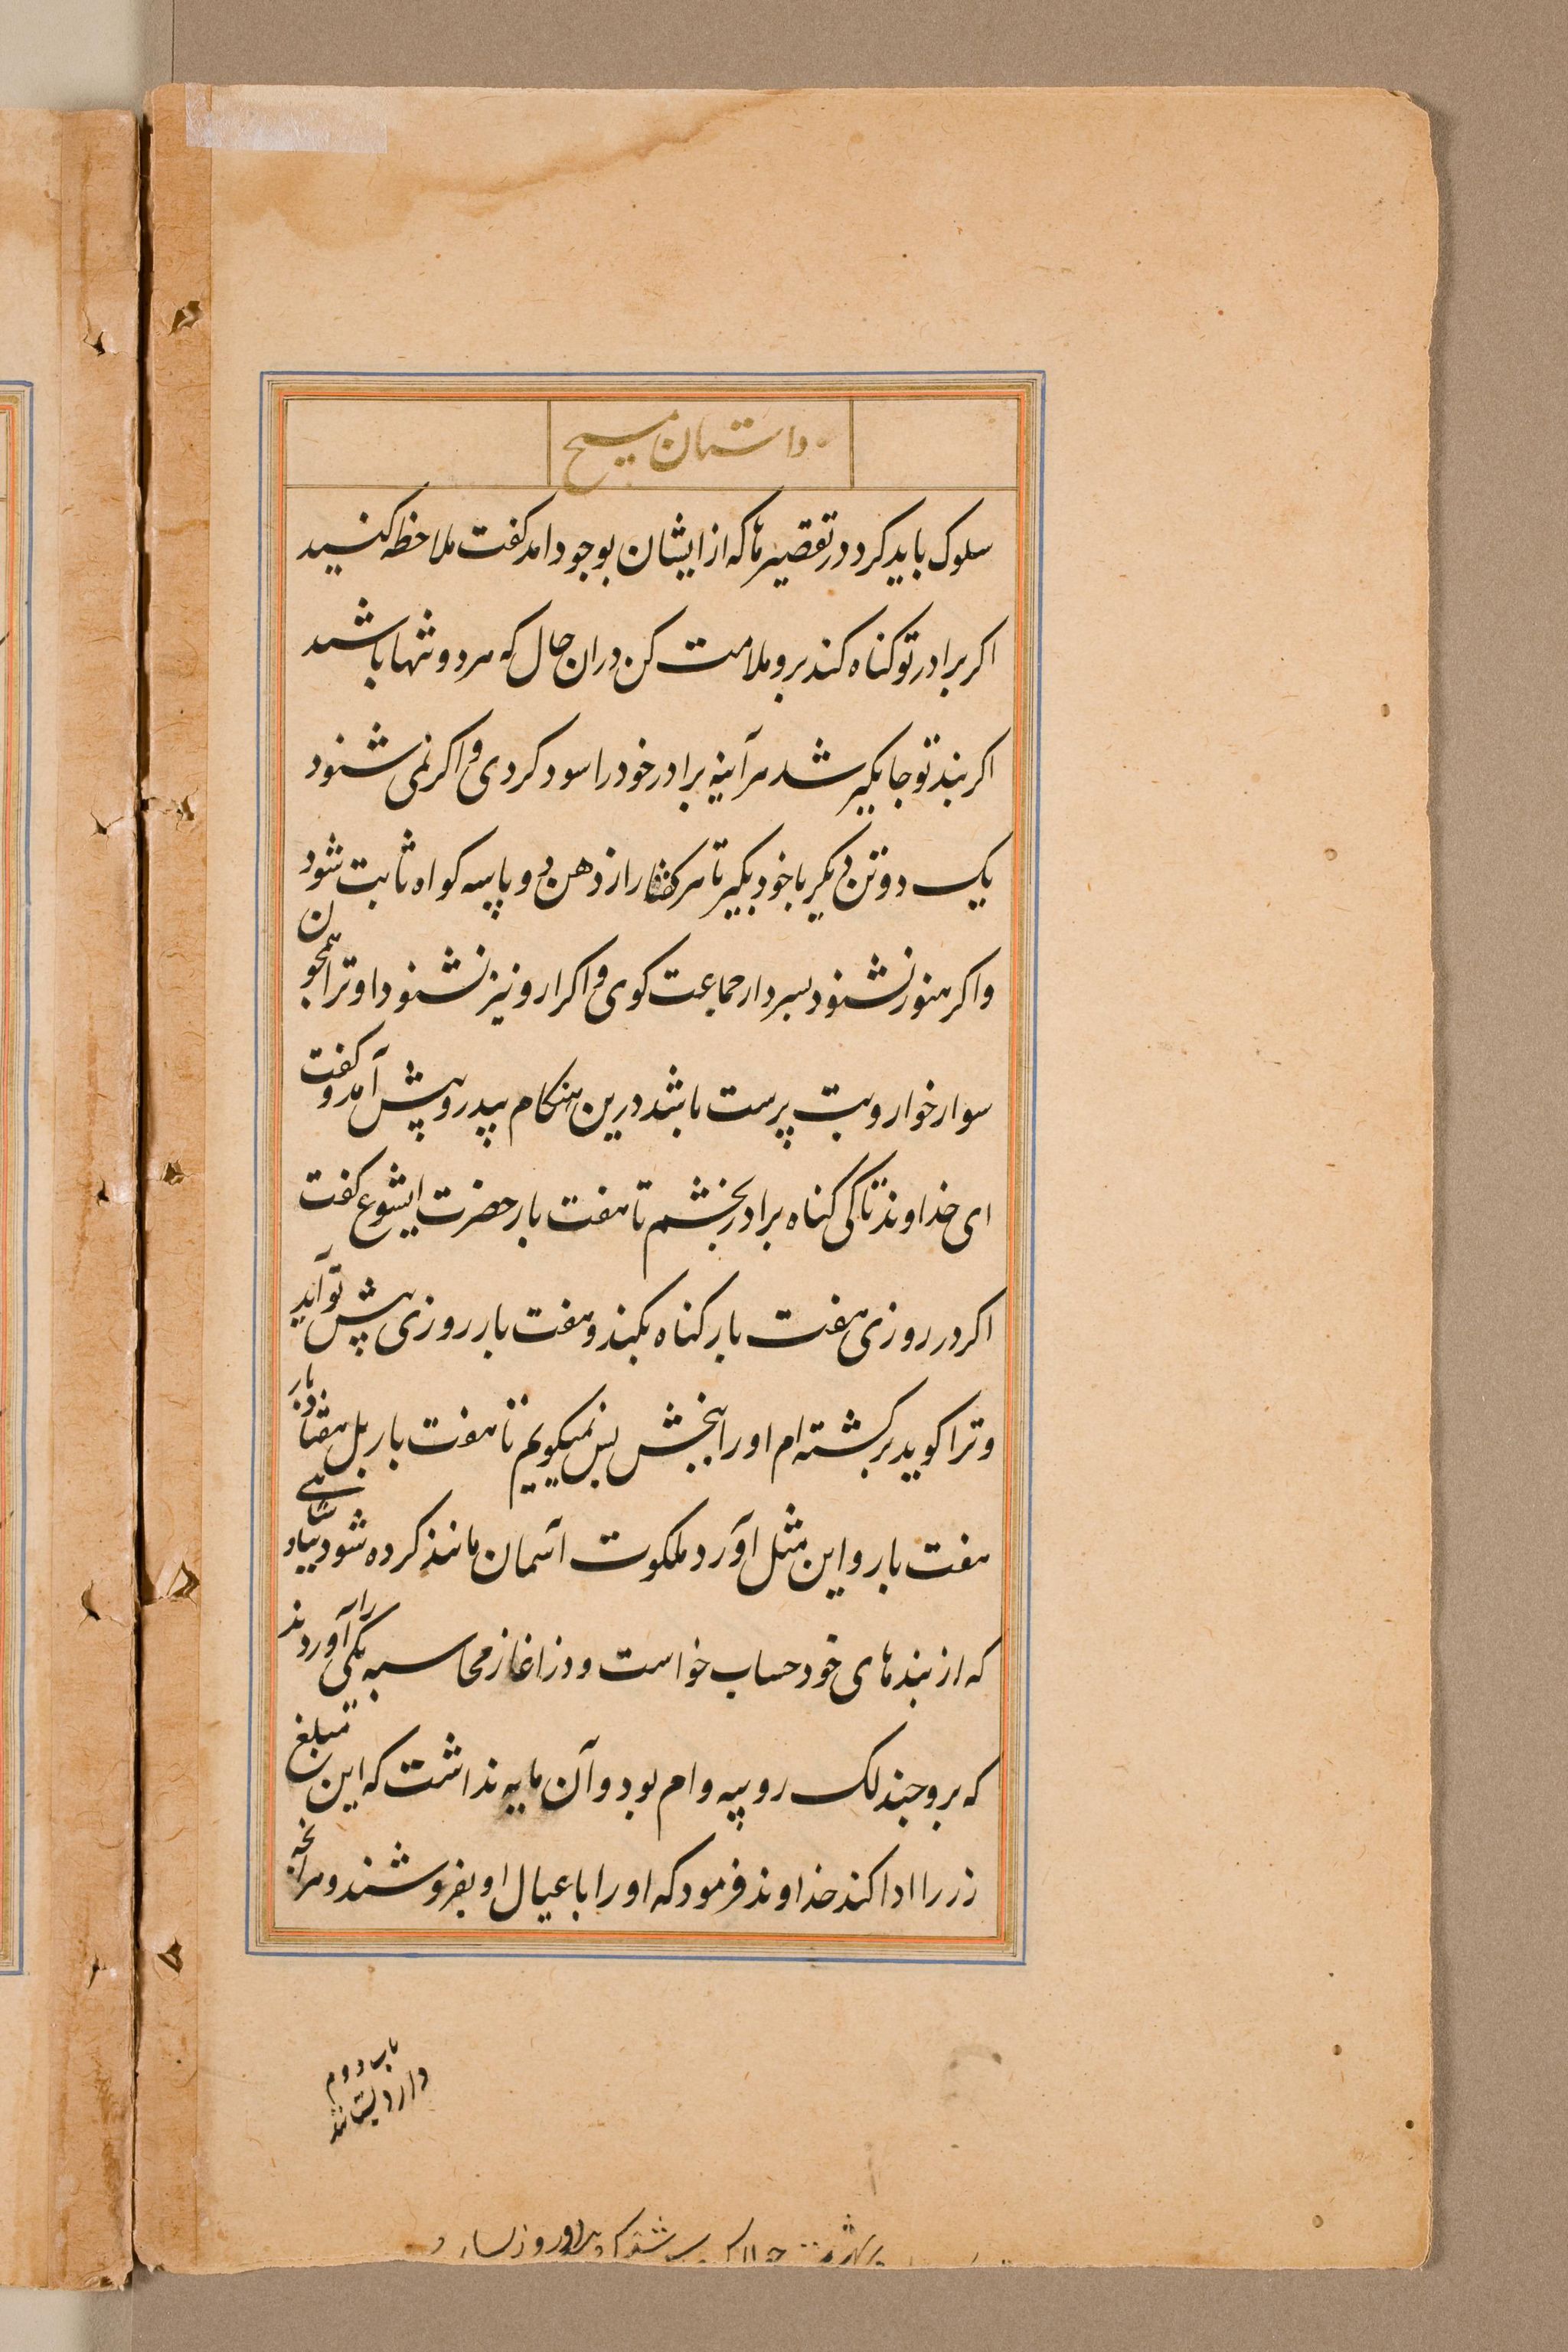 داستان مسیح
سلوک باید کرد در تقصیرها که از ایشان بوجود امد کفت ملاحظه کنید
اکر برادر تو کناه کند برو ملامت کن دران حال که هر دو تنها باشید
اکر پند تو جایکیر شد هرآینه برادر خود را سود کردی و اکر نمی شنود
یک دو تن دیکر با خود بکیر تا هر کفتار از دهن دو یا سه کواه ثابت شود
واکر هنوز نشنود بسردار جماعت کوی و اکر ازو نیز نشنود او ترا همچون
سوارخوار و بت پرست باشد درین هنکام پیدرو پیش آمد و کفت
ای خداوند تا کی کناه برادر بخشم تا هفت بار حضرت ایشوع کفت
اکر در روزی هفت بار کناه بکند و هفت بار روزی پیش تو آید
و ترا کوید برکشته ام او را ببخش پس نمیکویم تا هفت بار بل هفتاد بار
هفت بار و این مثل آورد ملکوت آسمان مانند کرده شود بپادشاهی
که از بندهای خود حساب خواست و در اغاز محاسبه یکی را آوردند
که برو چند لک روپیه وام بود و آن مایه نداشت که این مبلغ
زر را ادا کند خداوند فرمود که او را با عیال او بفروشند و هرانچه
باب دوم
دارد بستانند